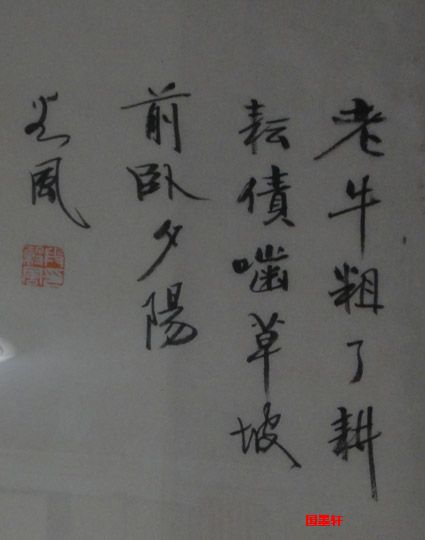 老牛粗了耕
耘債嚙草坡
前臥夕陽
国墨轩